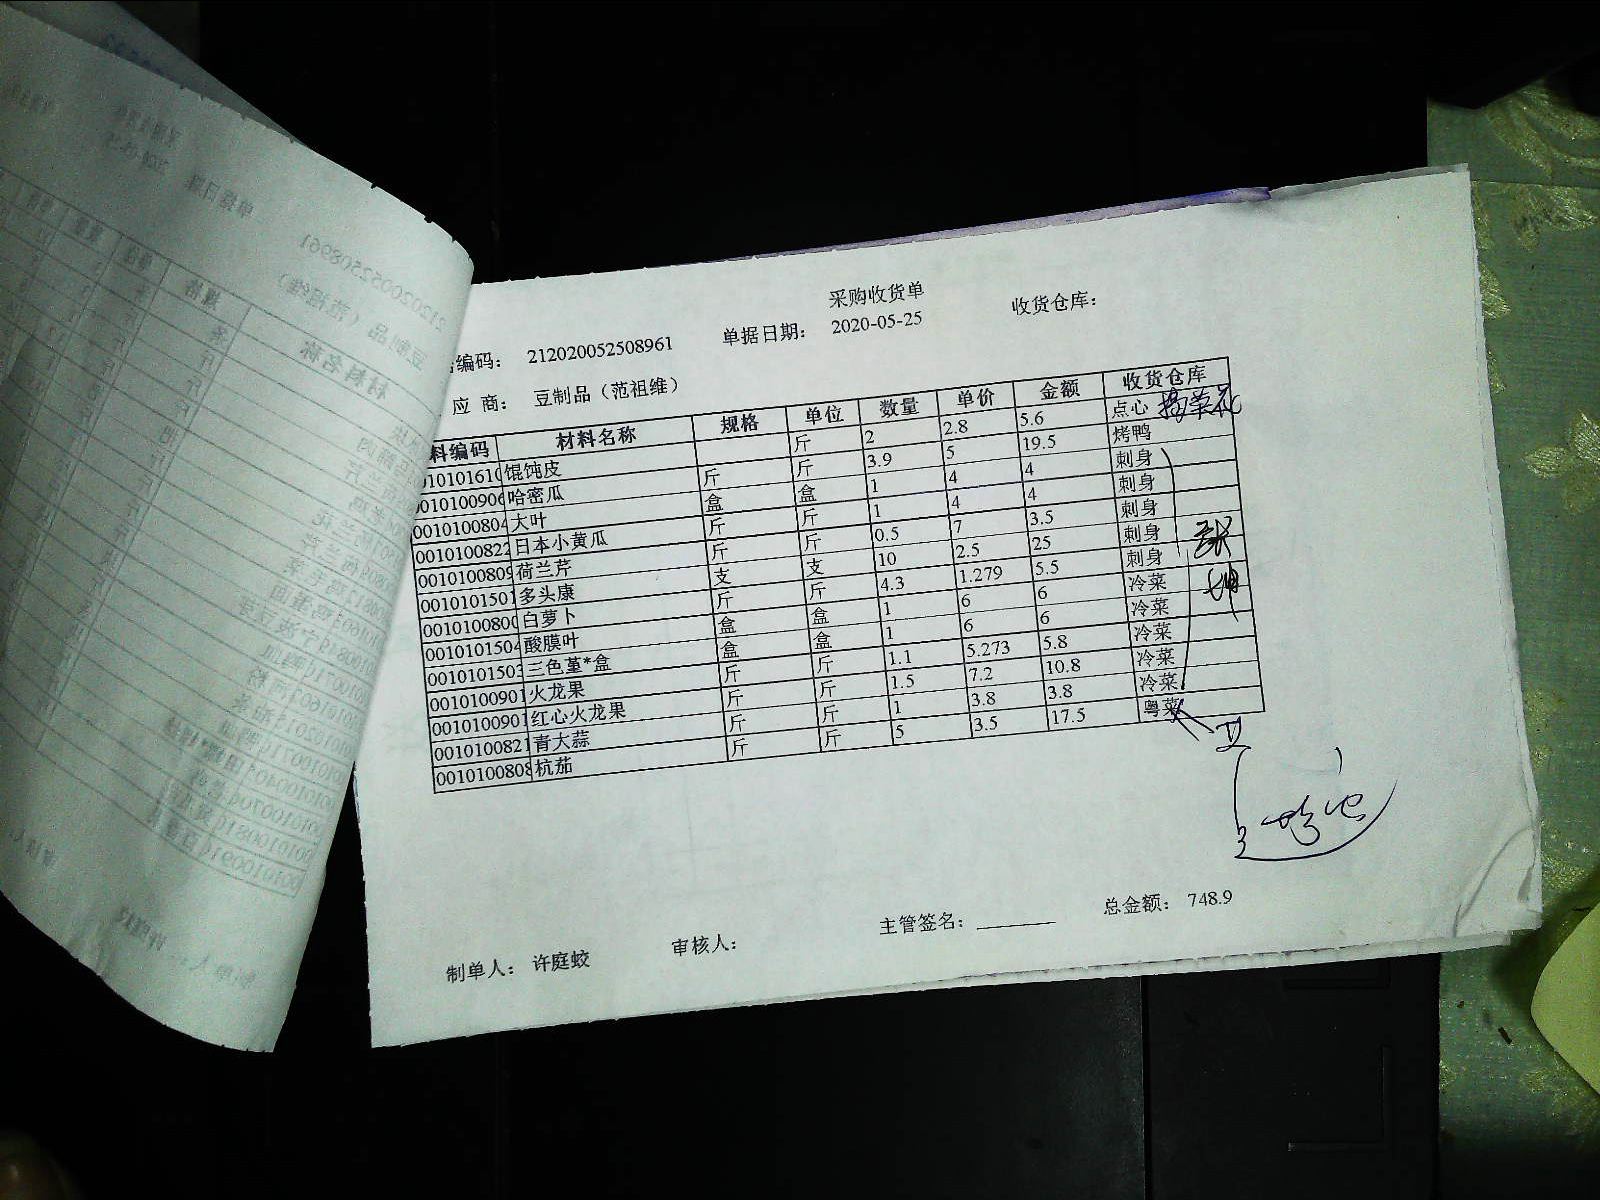 采购收货单
编码： 212020052508961 单据日期： 2020-05-25 收货仓库：
应 商： 豆制品（范祖维）
料编码 材料名称 规格 单位 数量 单价 金额 收货仓库
010101610 馄饨皮 斤 2 2.8 5.6 点心
0010100906 哈密瓜 斤 斤 3.9 5 19.5 烤鸭
0010100804 大叶 盒 盒 1 4 4 刺身
0010100822 日本小黄瓜 斤 斤 1 4 4 刺身
0010100809 荷兰芹 斤 斤 0.5 7 3.5 刺身
0010101501 多头康 支 支 10 2.5 25 刺身
0010100800 白萝卜 斤 斤 4.3 1.279 5.5 刺身
0010101504 酸膜叶 盒 盒 1 6 6 冷菜
0010101503 三色堇*盒 盒 盒 1 6 6 冷菜
0010100901 火龙果 斤 斤 1.1 5.273 5.8 冷菜
0010100901 红心火龙果 斤 斤 1.5 7.2 10.8 冷菜
0010100821 青大蒜 斤 斤 1 3.8 3.8 冷菜
0010100808 杭茄 斤 斤 5 3.5 17.5 粤菜
制单人： 许庭蛟 审核人： 主管签名： 总金额： 748.9